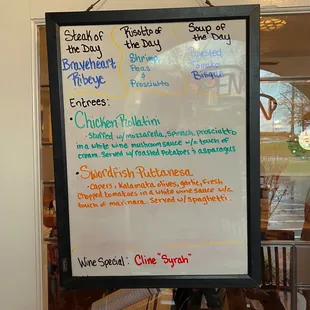 Steak of the Day
Braveheart
Ribeye
Risotto of the Day
Shrimp
Peas
&
Prosciutto
Soup of the Day
Roasted
Tomato
Bisque
Entrees:
• Chicken Rollatini
- Stuffed w/mozzarella, spinach, prosciutto
in a white wine mushroom sauce w/a touch of
cream. Served w/roasted potatoes & asparagus
• Swordfish Puttanesca
- Capers, Kalamata olives, garlic, fresh
chopped tomatoes in a white wine sauce w/a
touch of marinara. Served w/spaghetti.
Wine Special: Cline "Syrah"